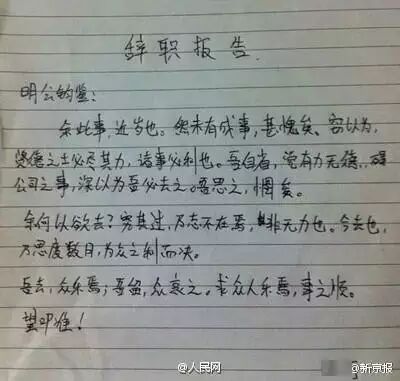 辞职报告
明公钧鉴：
余此事，近岁也。然未有成事，甚愧矣。窃以为，
贤德之士必尽其力，诸事必利也。吾自省，觉有力无德，碍
公司之事，深以为吾必去之。吾思之，惘矣。
余何以欲去？穷其过，乃志不在焉，非无力也。今去也，
乃思度数月，为众之利而决。
吾去，众乐焉；吾留，众哀之。求众人乐焉，事之顺。
望叩准！
@人民网
@新京报